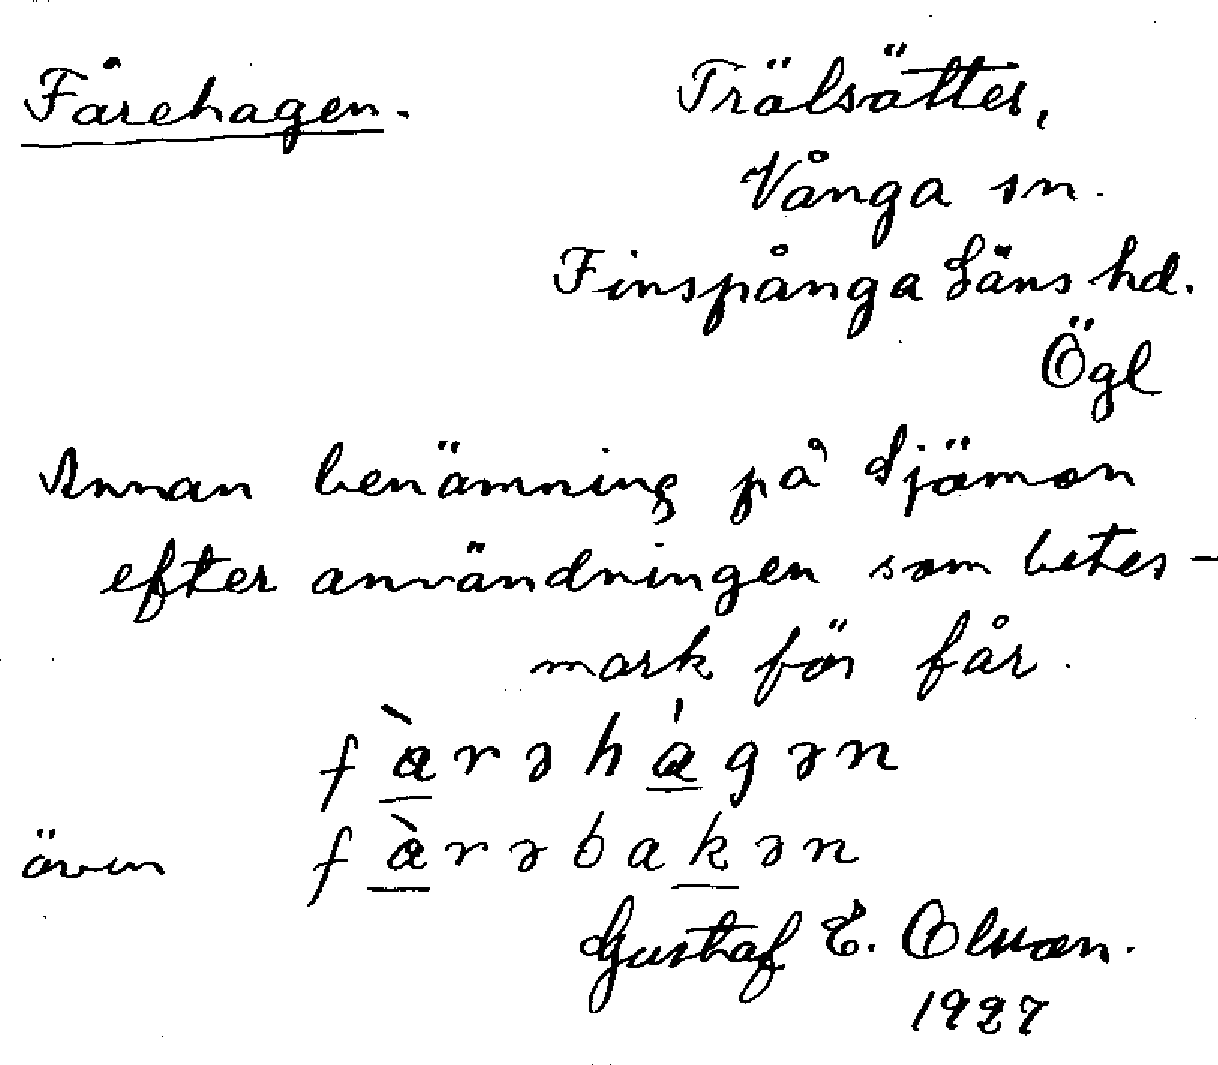 Fårehagen.
Trälsätter,
Vånga sn.
Finspånga läns hd.
Ögl
Annan benämning på Sjömon
efter användningen som betes-
mark för får.
fàrəhágən
även fàrəbakən
Gustaf E. Olsson.
1927